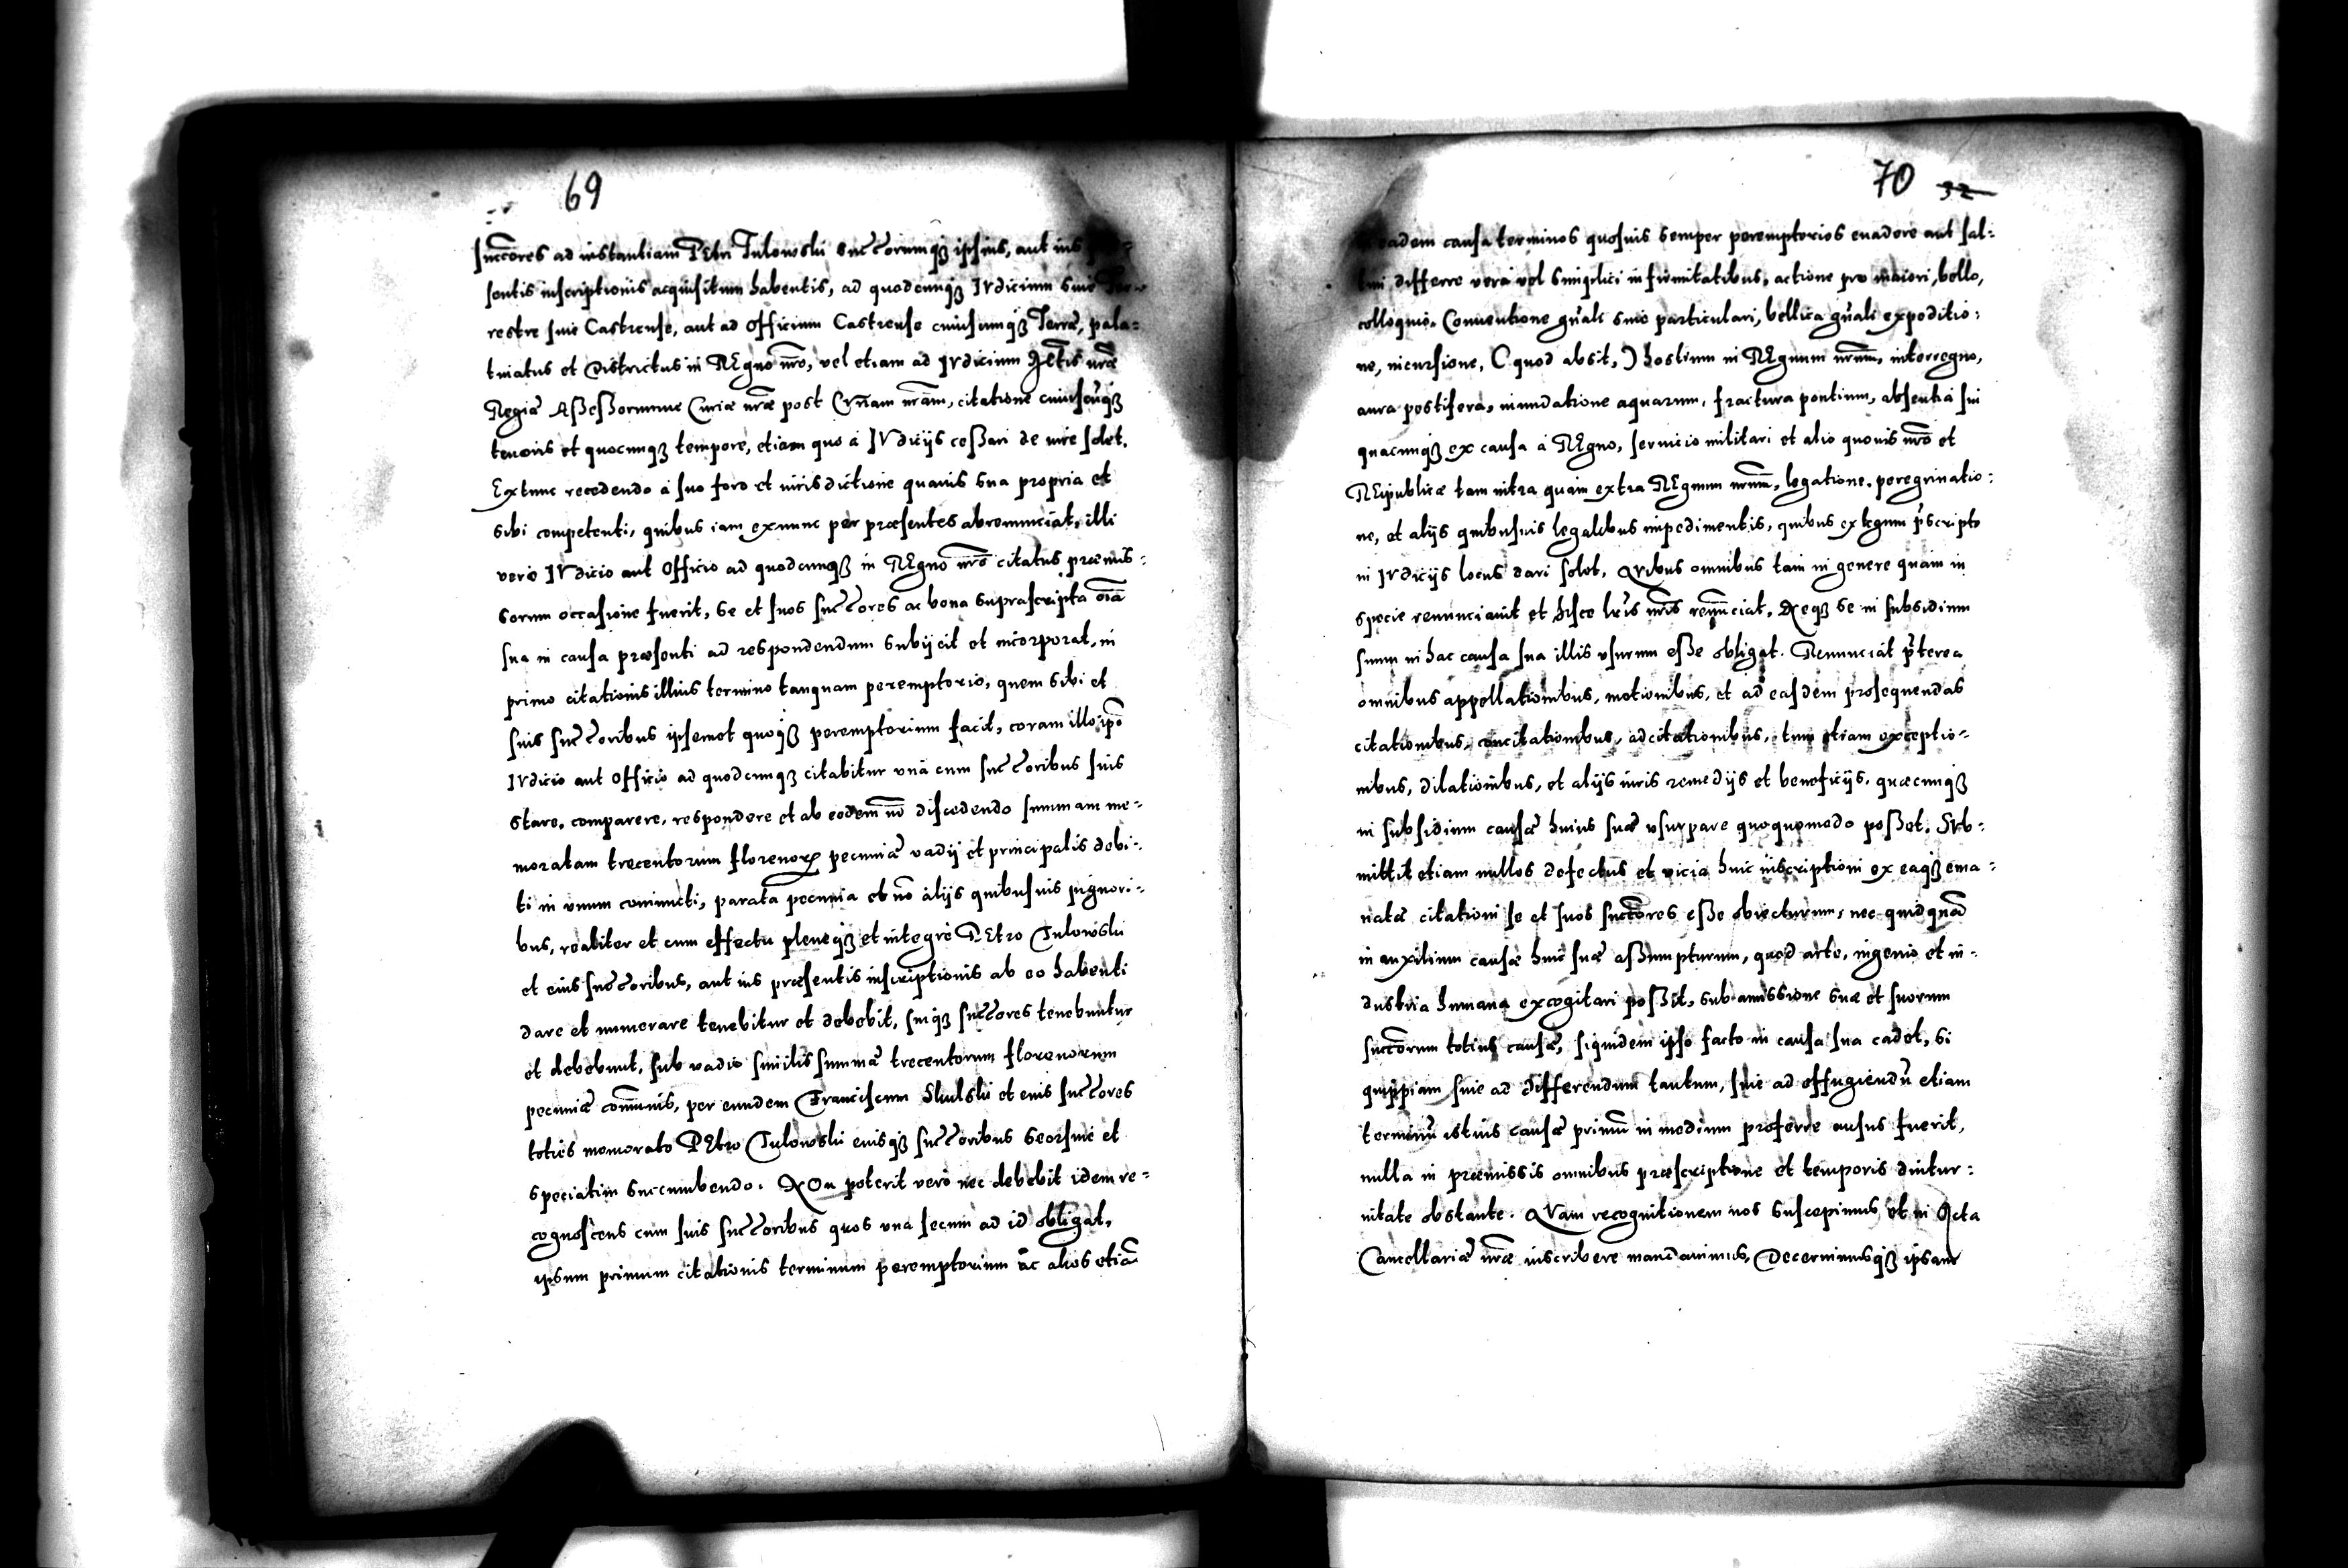 69
succores ad instantiam PEtri Tulowski succorumqꝫ ipsius, aut ius
sentis inscriptionis acquisitum habentis, ad quodcunqꝫ IVdicium siue Ter-
restre siue Castrense, aut ad officium Castrense cuiuscunqꝫ Terræ, pala=
tinatus et Districtus in REgno nr̄o, vel etiam ad IVdicium nr̄æ
Regiæ Aßeßorumue Curiæ nr̄æ post Cur̄iam nr̄am, citatione cuiuscūqꝫ
tenoris et quocunqꝫ tempore, etiam quo à IVdicijs ceßari de iure solet.
Extunc recedendo à suo foro et iurisdictione quauis sua propria et
sibi competenti, quibus iam exnunc per præsentes abrenunciat, illi
vero IVdicio aut Officio ad quodcunqꝫ in REgno nr̄o citatus præmis=
sorum occasione fuerit, se et suos succores ac bona suprascripta oīa
sua in causa præsenti ad respondendum subijcit et incorporat, in
primo citationis illius termino tanquam peremptorio, quem sibi et
suis succoribus ipsemet quoqꝫ peremptorium facit, coram illo ipō
IVdicio aut Officio ad quodcunqꝫ citabitur vnà cum succoribus suis
stare, comparere, respondere et ab eodem nō discedendo summam me=
moratam trecentorum florenorꝝ pecuniæ vadij et principalis debi=
ti in vnum coniuncti, parata pecunia et nō alijs quibusuis pignori=
bus, realiter et cum effectu pleneqꝫ et integre PEtro Tulowski
et eius succoribus, aut ius præsentis inscriptionis ab eo habenti
dare et numerare tenebitur et debebit, suiqꝫ succores tenebuntur
et debebunt, sub vadio similis summæ trecentorum florenorum
pecuniæ com̄unis, per eundem Franciscum Skulski et eius succores
toties memorato PEtro Tulowski eiusqꝫ succoribus seorsiue et
speciatim succumbendo. NOn poterit vero nec debebit idem re=
cognoscens cum suis succoribus quos vna secum ad id obligat,
ipsum primum citationis terminum peremptorium ac alios etiā
70 32
eadem causa terminos quosuis semper peremptorios euadere aut sal=
tim differre vera vel simplici infirmitatibus, actione pro maiori, bello,
colloquio, Conuentione gn̄ali siue particulari, bellica gn̄ali expeditio=
ne, incursione, (quod absit,) hostium in REgnum nr̄um, interregno,
aura pestifera, inundatione aquarum, fractura pontium, absentia sui
quacunqꝫ ex causa à REgno, seruicio militari et alio quouis nr̄o et
REipublicæ tam intra quam extra REgnum nr̄um, legatione, peregrinatio=
ne, et alijs quibusuis legalibus impedimentis, quibus ex legum p̄scripto
in IVdicijs locus dari solet. QVibus omnibus tam in genere quam in
specie renunciauit et hisce lr̄is nr̄is renunciat. Neqꝫ se in subsidium
suum in hac causa sua illis vsurum eße obligat. Renunciat p̄terea
omnibus appellationibus, motionibus, et ad easdem prosequendas
citationibus, concitationibus, adcitationibus, tum etiam exceptio=
nibus, dilationibus, et alijs iuris remedijs et beneficijs, quæcunqꝫ
in subsidium causæ huius suæ vsurpare quoquomodo poßet. SVb=
mittit etiam nullos defectus et vicia huic inscriptioni ex eaqꝫ ema=
natæ citationi se et suos succores eße obiecturum, nec quidquā
in auxilium causæ huic suæ aßumpturum, quod arte, ingenio et in=
dustria humana excogitari poßit, sub amissione suæ et suorum
succorum totius causæ, siquidem ipso facto in causa sua cadet, si
quippiam siue ad differendum tantum, siue ad effugiendū etiam
terminū istius causæ primū in medium proferre ausus fuerit,
nulla in præmissis omnibus præscriptione et temporis diutur=
nitate obstante. QVam recognitionem nos suscepimus et in Acta
Cancellariæ nr̄æ inscribere mandauimus, Decernimusqꝫ ipsam